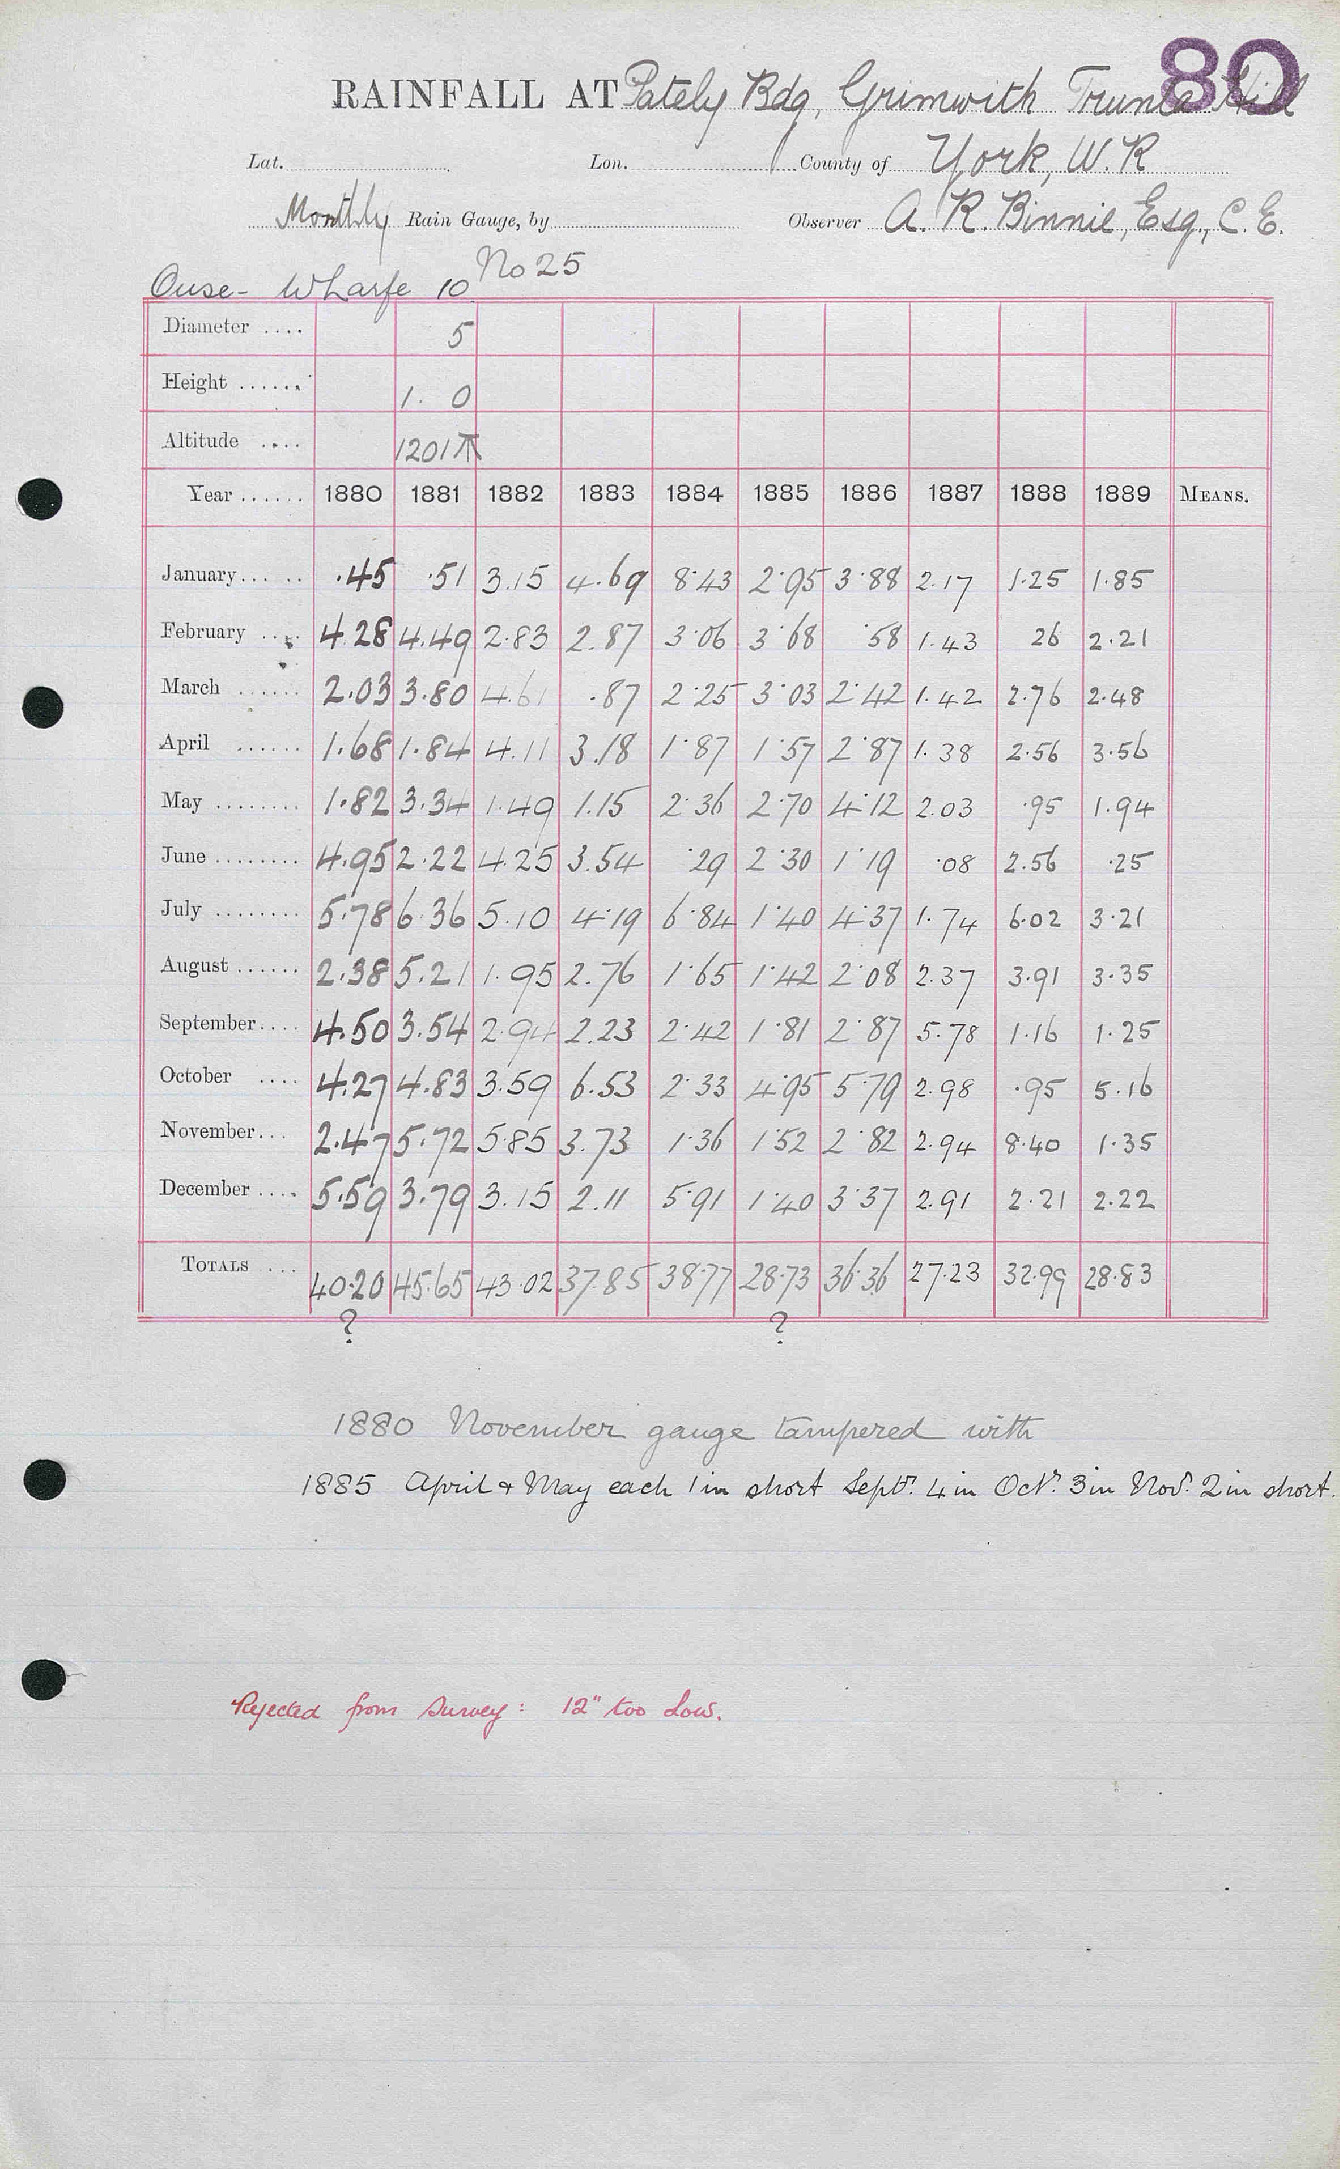 80
RAINFALL AT Pately Bdg, Grimwith Trunla Hill
Lat. Lon. County of York, W.R
Monthly Rain Gauge, by Observer A. R. Binnie, Esq., C.E.
Ouse- Wharfe 10 No 25
Diameter .... 5
Height ...... 1. 0
Altitude .... 1201
Year ...... 1880 1881 1882 1883 1884 1885 1886 1887 1888 1889 MEANS.
January ...... .45 .51 3.15 4.69 8.43 2.95 3.88 2.17 1.25 1.85
February .... 4.28 4.49 2.83 2.87 3.06 3.68 .58 1.43 26 2.21
March ...... 2.03 3.80 4.61 .87 2.25 3.03 2.42 1.42 2.76 2.48
April ...... 1.68 1.84 4.11 3.18 1.87 1.57 2.87 1.38 2.56 3.56
May ........ 1.82 3.34 1.49 1.15 2.36 2.70 4.12 2.03 .95 1.94
June ........ 4.95 2.22 4.25 3.54 .29 2.30 1.19 .08 2.56 .25
July ........ 5.78 6.36 5.10 4.19 6.84 1.40 4.37 1.74 6.02 3.21
August ...... 2.38 5.21 1.95 2.76 1.65 1.42 2.08 2.37 3.91 3.35
September .... 4.50 3.54 2.94 2.23 2.42 1.81 2.87 5.78 1.16 1.25
October .... 4.27 4.83 3.59 6.53 2.33 4.95 5.79 2.98 .95 5.16
November ... 2.47 5.72 5.85 3.73 1.36 1.52 2.82 2.94 8.40 1.35
December .... 5.59 3.79 3.15 2.11 5.91 1.40 3.37 2.91 2.21 2.22
TOTALS ... 40.20 45.65 43.02 37.85 38.77 28.73 36.36 27.23 32.99 28.83
? ?
1880 November gauge tampered with
1885 April & May each 1 in short Septr. 4 in Octr. 3 in Novr. 2 in short.
Rejected from Survey: 12" too low.